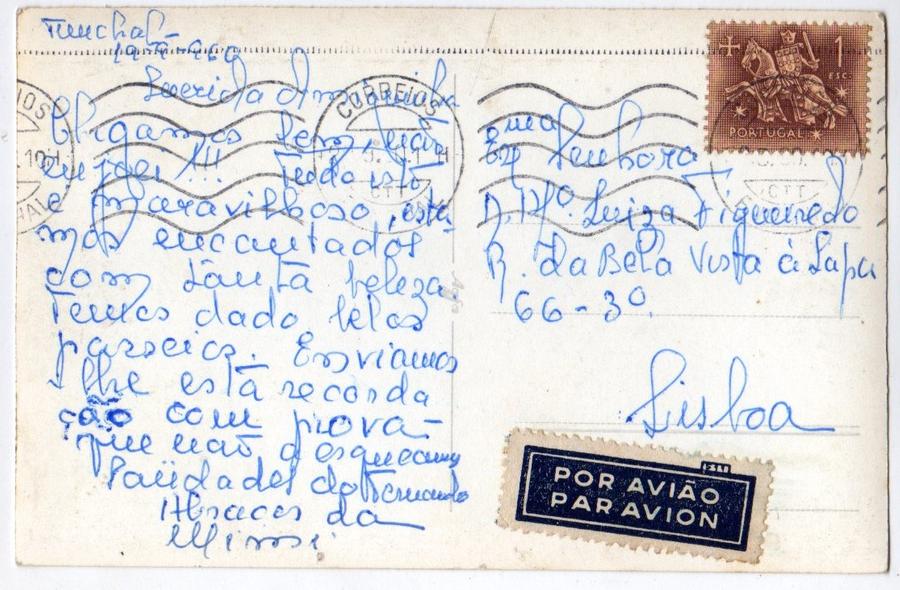 Funchal-
Querida Amiguinha
Chegámos bem, não
enjoei !!! Tudo isto
é maravilhoso, esta
mos encantados
com tanta beleza.
Temos dado belos
passeios. Enviamos
lhe esta recorda
ção com prova
que não a esquecemos
Saüdades do Fernando
Abraços da
Mimi
CORREIOS
CTT
1
ESC.
PORTUGAL
CTT
Exma
Senhora
D. Ma. Luiza Figueiredo
R. da Bela Vista à Lapa
66-3º.
Lisboa
POR AVIÃO
PAR AVION